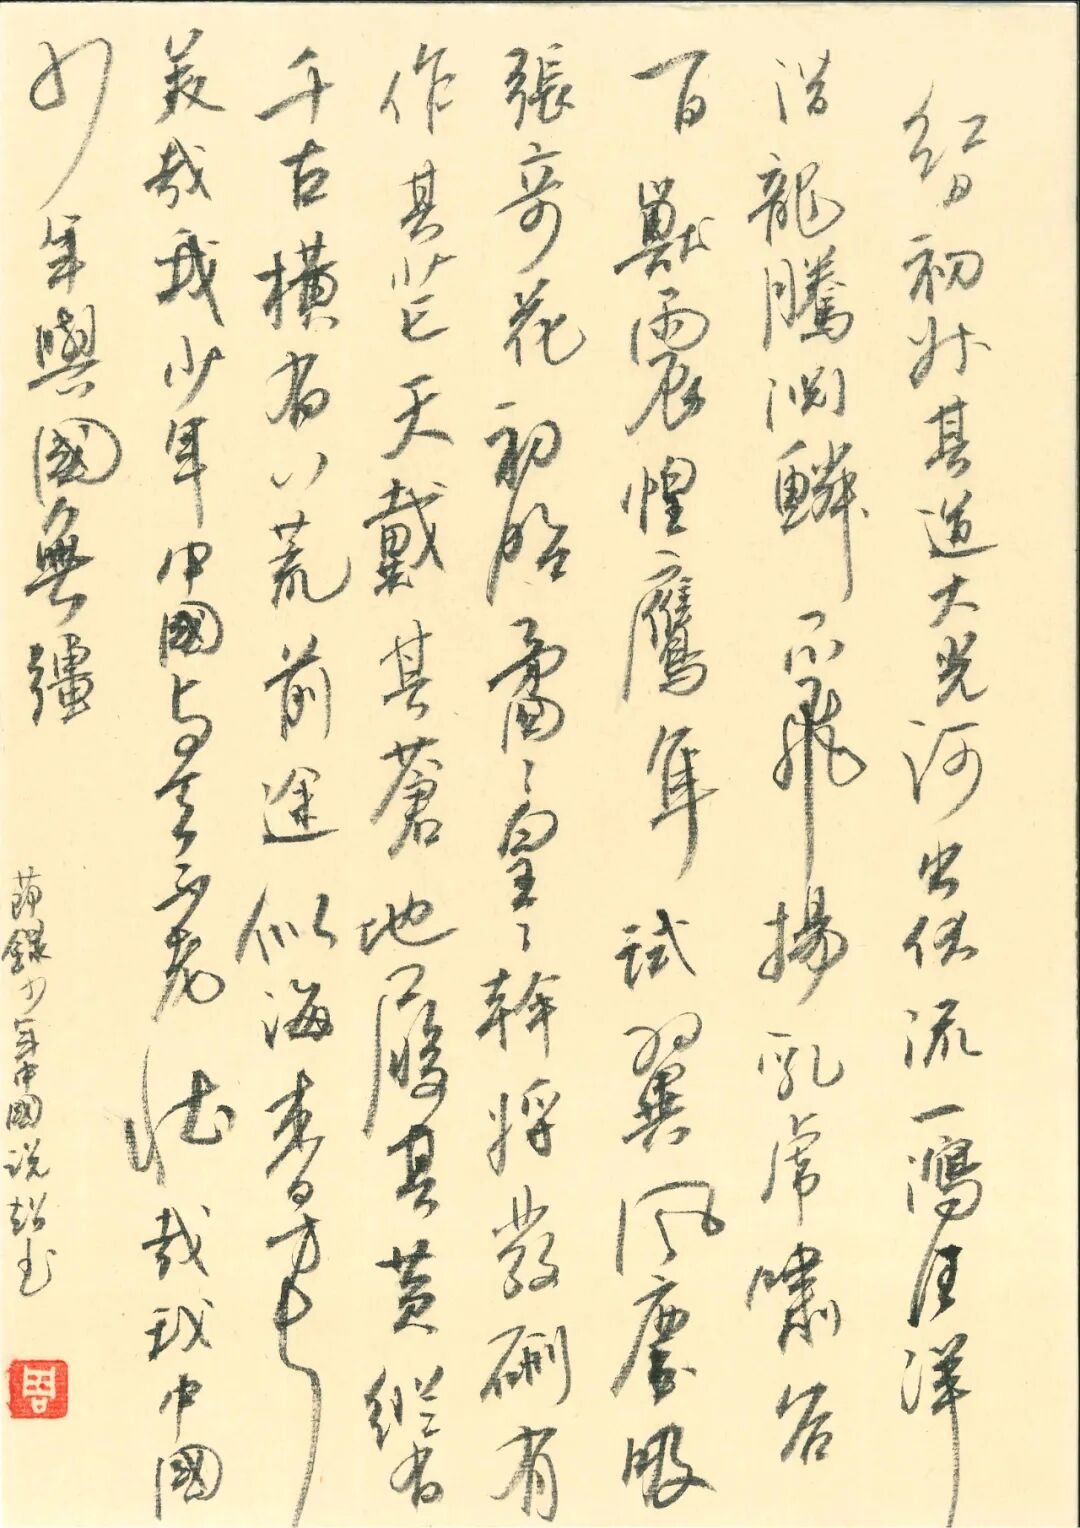 紅日初升其道大光河出伏流一瀉汪洋
潛龍騰淵鱗爪飛揚乳虎嘯谷
百獸震惶鷹隼試翼風塵吸
張奇花初胎矞〻皇〻幹將發硎有
作其芒天戴其蒼地履其黃縱有
千古橫有八荒前途似海來日方長
美哉我少年中國與天不老壯哉我中國
少年與國無疆
節錄少年中國說